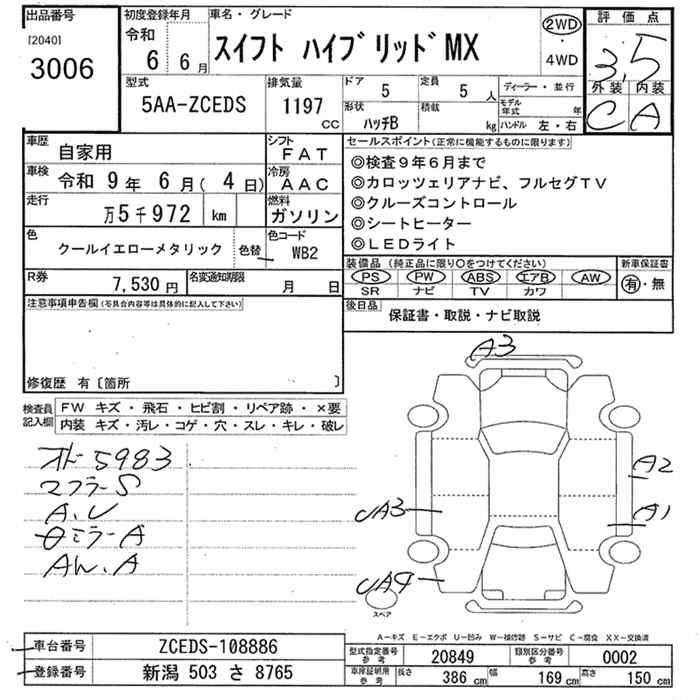 出品番号
[2040]
3006
初度登録年月
令和
6 6 月
車名・グレード
スイフト ハイブリッド MX
2WD
・
4WD
評価点
3.5
外装 内装
C A
型式
5AA-ZCEDS
排気量
1197
CC
ドア
5
定員
5 人
形状
ハッチB
積載
kg
ディーラー・並行
モデル年式 年
ハンドル 左・右
車歴
自家用
シフト
FAT
車検
令和 9年 6月( 4日)
冷房
AAC
走行
万5千972 km
燃料
ガソリン
色
クールイエローメタリック
色替
色コード
WB2
R券
7,530円
名変通知期限
月 日
セールスポイント(正常に機能するものに限ります)
◎検査9年6月まで
◎カロッツェリアナビ、フルセグTV
◎クルーズコントロール
◎シートヒーター
◎LEDライト
装備品(純正品に限り○をつけてください)
PS PW ABS エアB AW
SR ナビ TV カワ
新車保証書
有・無
後日品
保証書・取説・ナビ取説
注意事項申告欄(不具合内容等は具体的に記入して下さい)
修復歴 有〔箇所 〕
検査員記入欄
FW キズ・飛石・ヒビ割・リペア跡・×要
内装 キズ・汚レ・コゲ・穴・スレ・キレ・破レ
オドー5983
マフラーS
A.U
ミラーA
AW.A
A3
A2
A1
UA3
UA4
スペア
A−キズ E−エクボ U−凹み W−補修跡 S−サビ C−腐食 XX−交換済
車台番号
ZCEDS-108886
登録番号
新潟 503 さ 8765
型式指定番号
参考
20849
類別区分番号
参考
0002
車庫証明用
参考
長さ 386 cm
幅 169 cm
高さ 150 cm